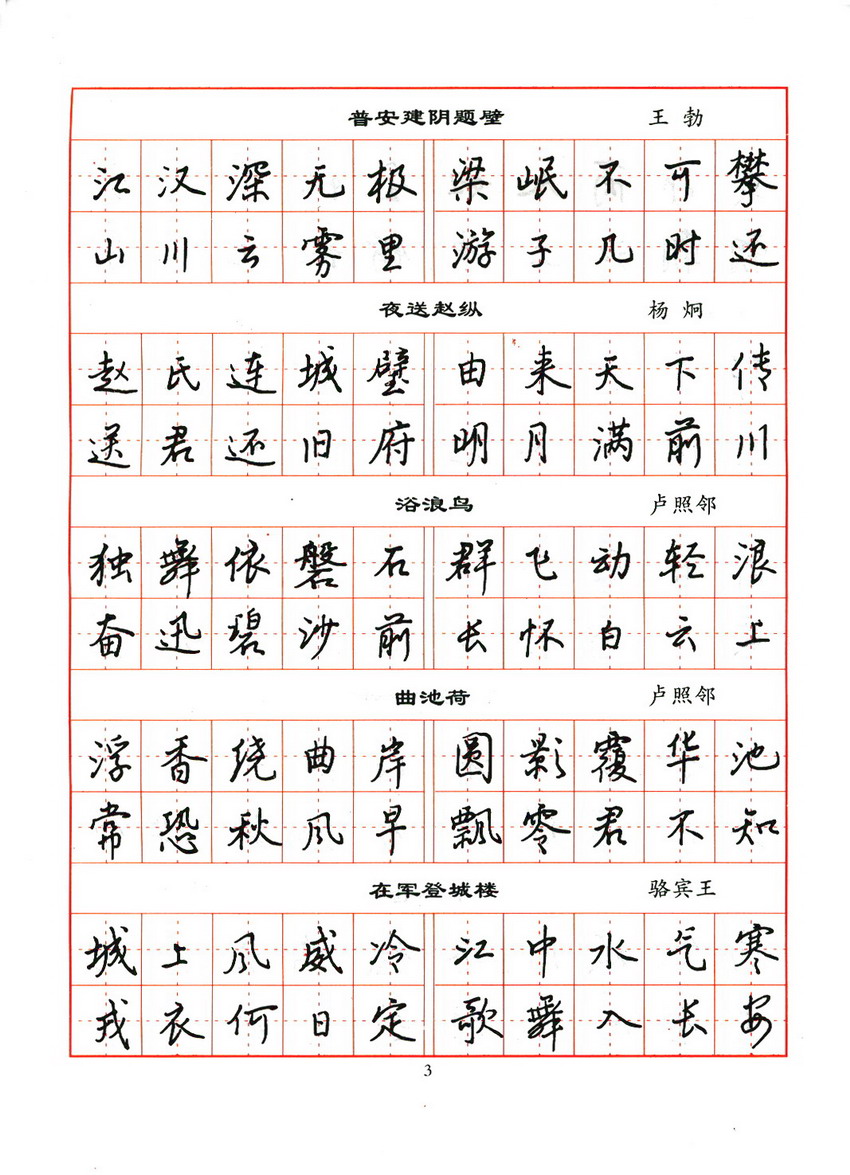 普安建阴题壁 王勃
江汉深无极 梁岷不可攀
山川云雾里 游子几时还
夜送赵纵 杨炯
赵氏连城璧 由来天下传
送君还旧府 明月满前川
浴浪鸟 卢照邻
独舞依磐石 群飞动轻浪
奋迅碧沙前 长怀白云上
曲池荷 卢照邻
浮香绕曲岸 圆影覆华池
常恐秋风早 飘零君不知
在军登城楼 骆宾王
城上风威冷 江中水气寒
戎衣何日定 歌舞入长安
3